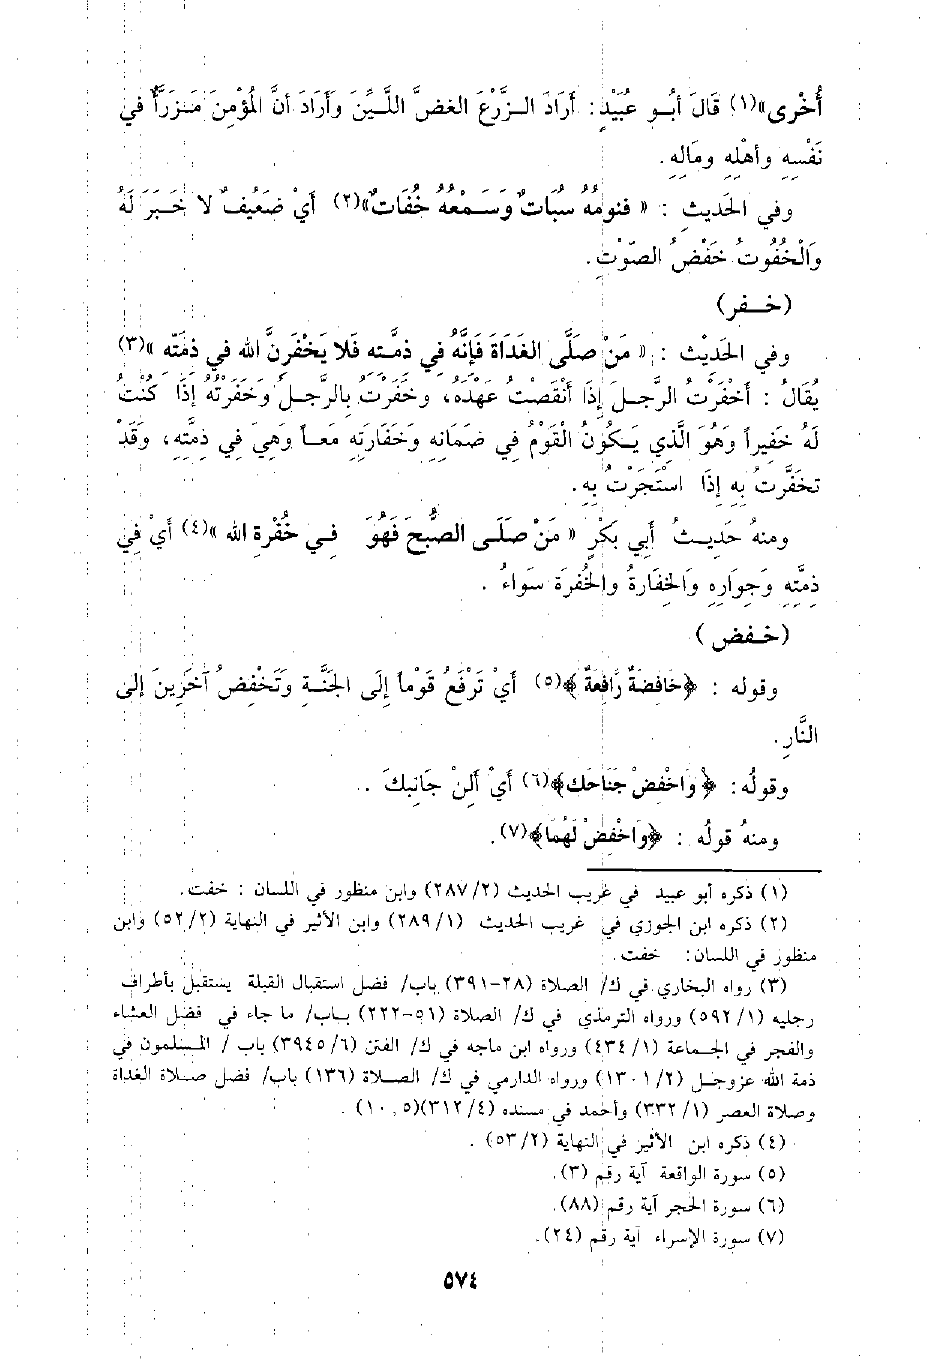 أُخْرى»(١) قَالَ أبُو عُبَيْدٍ: أرَادَ الزَّرْعَ الغَضَّ اللَّيِّنَ وَأرَادَ أنَّ المُؤْمِنَ مَنْزَرَأٌ في
نَفْسِهِ وأهْلِهِ ومَالِهِ.
وفي الحَديثِ : « فنومُهُ سُبَاتٌ وَسَمْعُهُ خُفَاتٌ»(٢) أيْ ضَعِيفٌ لا خَبَرَ لَهُ
وَالْخُفُوتُ خَفْضُ الصَّوْتِ.
(خـفر)
وفي الحَدِيْثِ : « مَنْ صَلَّى الغَدَاةَ فَإنَّهُ في ذمَّتِهِ فَلا يَخْفَرنَّ الله في ذمَّتِه »(٣)
يُقَالُ : أخْفَرْتُ الرَّجلَ إذَا أنْقَضتُ عهْدَه، وخَفَرْتُ بِالرَّجلِ وَخَفَرْتُه إذَا كُنْتُ
لَهُ خَفيراً وَهُوَ الَّذي يَكُونُ الْقَوْمُ فِي ضَمَانِهِ وَخَفَارتِهِ مَعاً وَهيَ في ذمَّتِهِ، وَقَدْ
تَخَفَّرتُ بِهِ إذَا اسْتَجَرْتُ بِهِ.
ومنهُ حَدِيثُ أبي بَكْرٍ « مَنْ صَلَى الصُّبحَ فَهُوَ في خُفْرةِ الله »(٤) أيْ فِي
ذِمَّتِهِ وَجِوَارِهِ وَالخِفَارةُ والخُفرَة سَواءُ .
(خـفض )
وقوله : ﴿خَافِضَةٌ رَّافِعَةٌ ﴾(٥) أيْ تَرْفَعُ قَوْماً إلَى الجَنَّةِ وَتَخْفِضُ آخَرِينَ إلى
النَّارِ.
وقولُه: ﴿ وَاخْفِضْ جَنَاحَكَ﴾(٦) أيْ ألِنْ جَانِبكَ .
ومنهُ قولُه : ﴿وَاخْفِضْ لَهُمَا﴾(٧).
(١) ذكره أبو عبيد في غريب الحديث (٢٨٧/٢) وابن منظور في اللسان : خفت.
(٢) ذكره ابن الجوزي في غريب الحديث (٢٨٩/١) وابن الأثير في النهاية (٥٢/٢) وابن
منظور في اللسان: خفت.
(٣) رواه البخاري في ك/ الصلاة (٢٨-٣٩١) باب/ فضل استقبال القبلة يستقبل بأطراف
رجليه (٥٩٢/١) ورواه الترمذي في ك/ الصلاة (٥١-٢٢٢) باب/ ما جاء في فضل العشاء
والفجر في الجماعة (٤٣٤/١) ورواه ابن ماجه في ك/ الفتن (٣٩٤٥/٦) باب / المسلمون في
ذمة الله عزوجل (١٣٠١/٢) ورواه الدارمي في ك/ الصلاة (١٣٦) باب/ فضل صلاة الغداة
وصلاة العصر (٣٣٢/١) وأحمد في مسنده (٣١٢/٤)(١٠,٥) .
(٤) ذكره ابن الأثير في النهاية (٥٣/٢) .
(٥) سورة الواقعة آية رقم (٣).
(٦) سورة الحجر آية رقم (٨٨).
(٧) سورة الإسراء آية رقم (٢٤).
٥٧٤